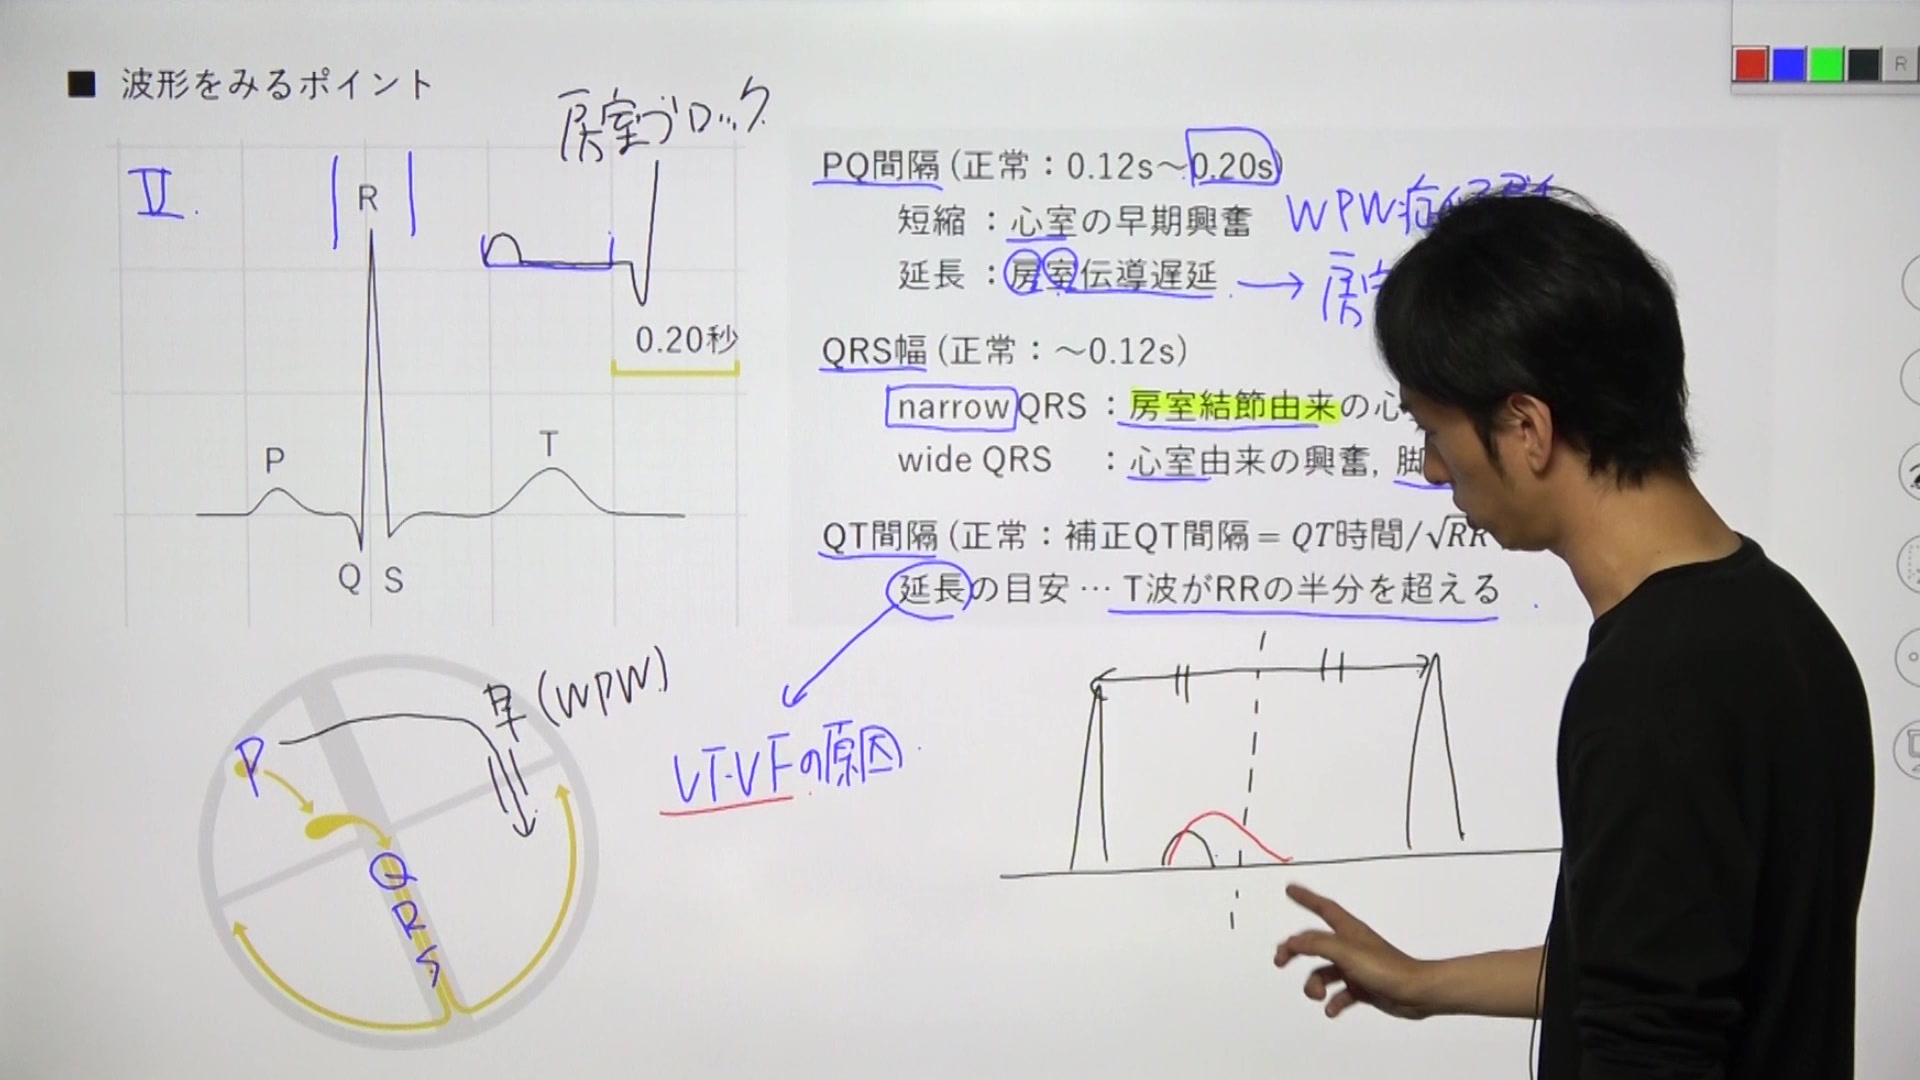 ■ 波形をみるポイント
房室ブロック
Ⅱ.
R
P
T
Q
S
0.20秒
PQ間隔(正常：0.12s～0.20s)
短縮：心室の早期興奮 WPW症候群
延長：房室伝導遅延 → 房
QRS幅(正常：～0.12s)
narrow QRS：房室結節由来の心
wide QRS ：心室由来の興奮, 脚
QT間隔(正常：補正QT間隔= QT時間/√RR
延長の目安…T波がRRの半分を超える
早(WPW)
P
Q
R
S
VT・VFの原因
R